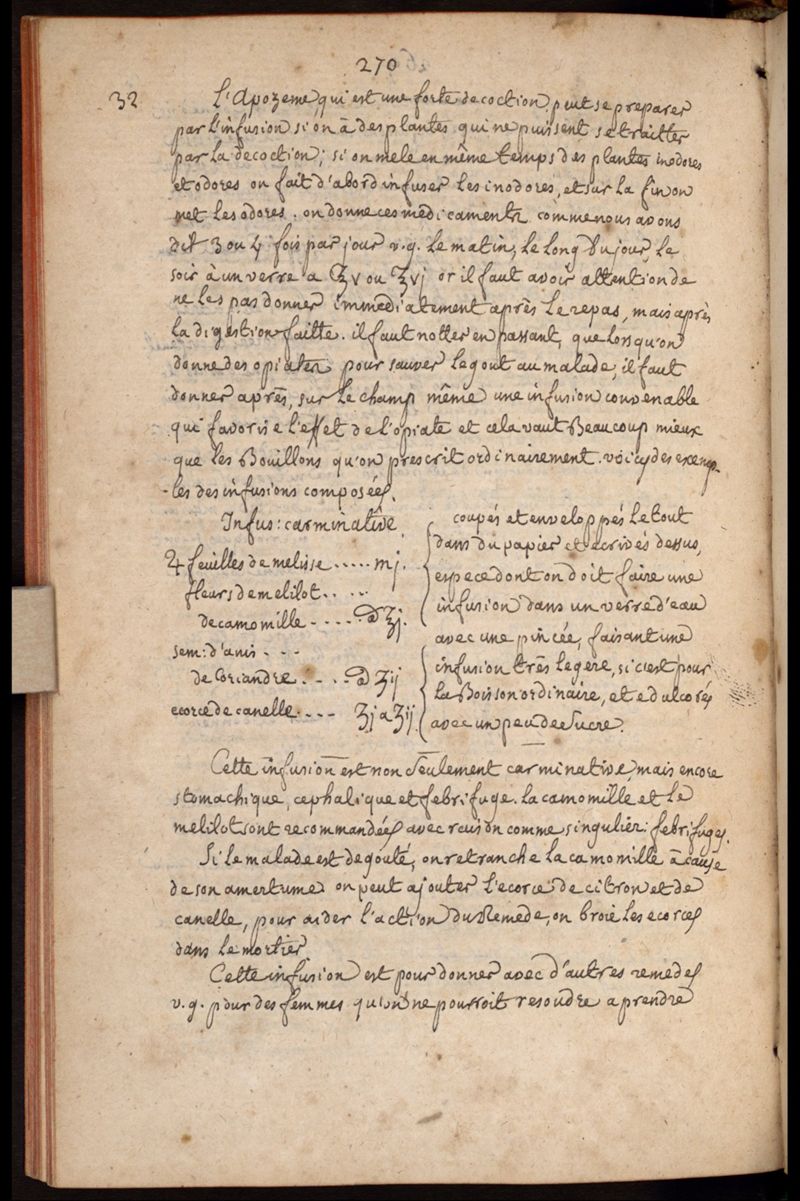 270
32 L'Apozeme, qui est une forte decoction, puit se preparer
par l'infusion si on â des plantes qui ne puissent se traitter
par la decoction; si on mele en même temps des plantes inodores
et odores on fait d'abord infuser les inodores, et sur la fin on
met les odores. on donne ces medicaments comme nous avons
dit 3 ou 4 fois par jour v.g. le matin, le long du jour, le
soir à un verre a ʒv ou ʒvj or il faut avoir attention de
ne les pas donner immediatement après le repas, mais après
la digestion faitte. il faut notter en passant, que lorsqu'on
donne des opiates pour sauver le gout au malade, il faut
donner après, sur le champ même une infusion convenable
qui favorise l'effet de l'opiate et cela vaut Beaucoup mieux
que les Bouillons qu'on prescrit ordinairement. voicy des exemp-
-les des infusions composées.
Infus: carminative.
♃ feuilles de melisse ..... mj.
fleurs de melilot ....
de camomille - .... a ʒj.
sem: d'anis - - -
de Coriandre .... a ʒij
ecorce de canelle .... ʒj a ʒij.
coupés et enveloppés le tout
dans du papier et ecrivés dessus,
espece dont on doit faire une
infusion dans un verre d'eau
avec une pincée, faisant une
infusion très legere, si c'est pour
la Boisson ordinaire, et edulcorés
avec un peu de Sucre.
Cette infusion est non Seulement carminative, mais encore
stomachique, cephalique et febrifuge. la camomille et le
melilot sont recommandées avec raison comme singulier: febrifuges.
Si le malade est degouté, on retranche la camomille â cause
de son amertume on peut ajouter l'ecorce de citron et de
canelle, pour aider l'action du Remede, on broie les ecorces
dans le mortier.
Cette infusion est pour donner avec d'autres remedes
v.g. pour des femmes qu'on ne pourroit resoudre a prendre